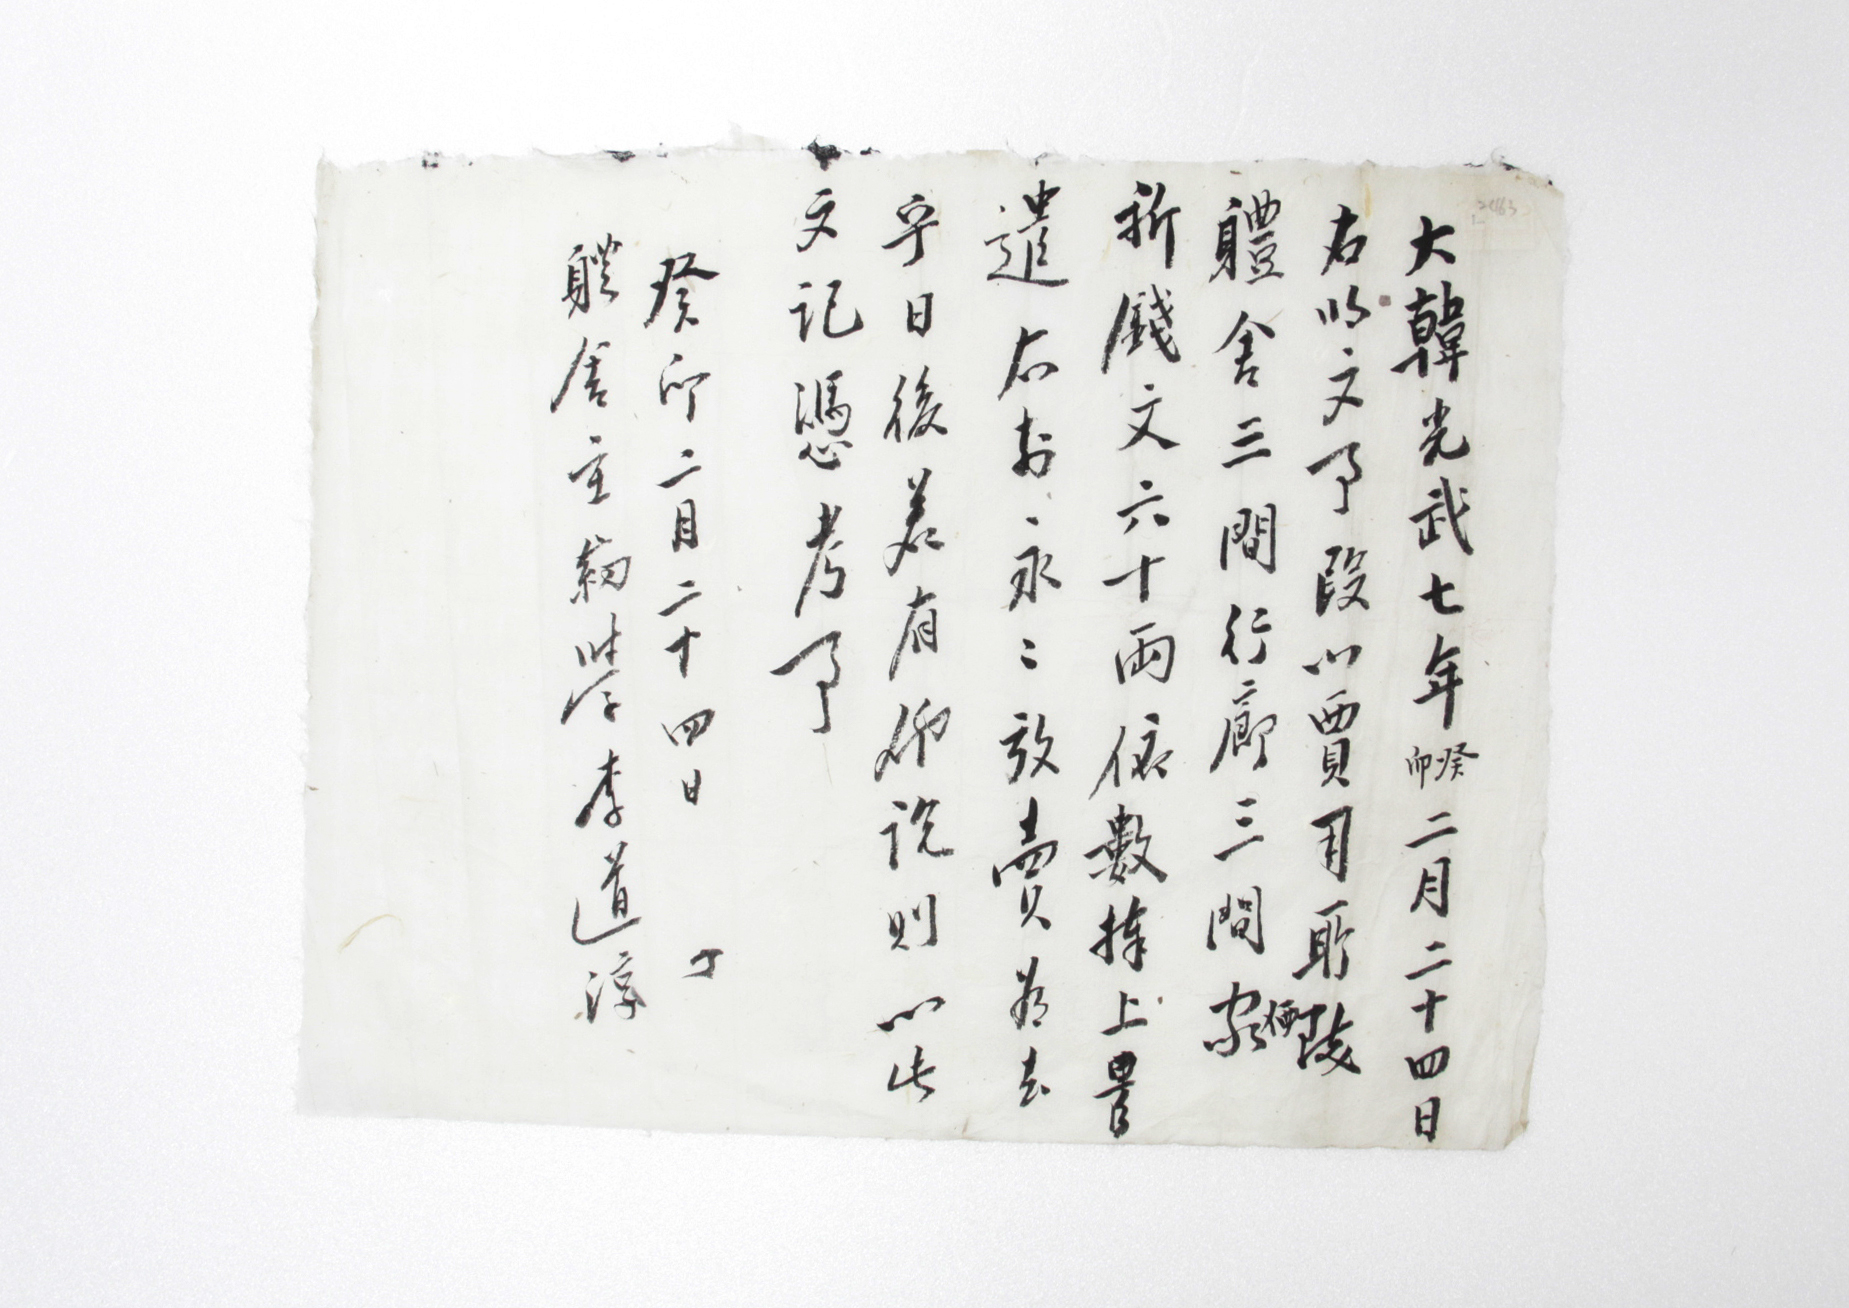 大韓光武七年癸卯二月二十四日
右明文事段以買用所陵
體舍三間行廊三間家價
折錢文六十兩依數捧上是
遣右前永〻放賣爲去
乎日後若有他說則以此
文記憑考事
癸卯二月二十四日
體舍主幼學李道淳